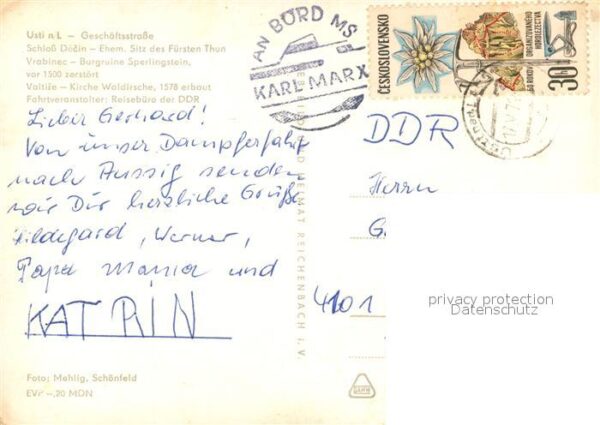 Usti n L – Geschäftsstraße
Schloß Děčin – Ehem. Sitz des Fürsten Thun
Vrabinec – Burgruine Sperlingstein,
vor 1500 zerstört
Valtiře – Kirche Waldirsche, 1578 erbaut
Fahrtveranstalter: Reisebüro der DDR
Lieber Gerhard!
Von unser Dampferfahrt
nach Aussig senden
wir Dir herzliche Grüße
Hildegard, Werner,
Papa Mama und
KATRIN
Foto: Mehlig, Schönfeld
EVP –,20 MDN
BILD UND HEIMAT REICHENBACH i. V.
AN BORD MS
KARL MARX
ČESKOSLOVENSKO
ORGANIZOVANÉHO
HOROLEZECTVA
30
DDR
Herrn
G.
4101
privacy protection
Datenschutz